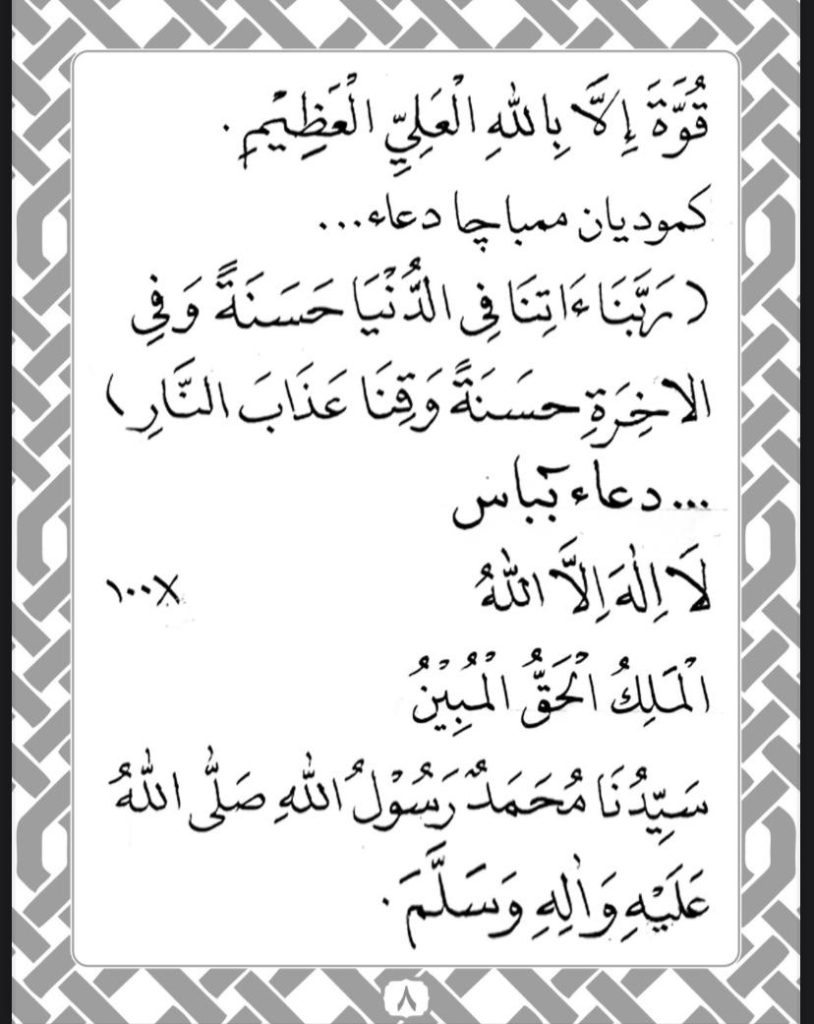 قُوَّةَ إِلَّا بِاللهِ الْعَلِيِّ الْعَظِيْمِ.
كموديان ممباچا دعاء...
(رَبَّنَا ءَاتِنَا فِى الدُّنْيَا حَسَنَةً وَفِى
الاخِرَةِ حسَنَةً وَقِنَا عَذَابَ النَّارِ)
...دعاء بٓباس
لَا اِلٰهَ اِلَّا اللهُ ١٠٠X
الْمَلِكُ الْحَقُّ الْمُبِيْنُ
سَيِّدُنَا مُحَمَدٌ رَسُوْلُ اللهِ صَلَّى اللهُ
عَلَيْهِ وَاٰلِهِ وَسَلَّمَ.
٨